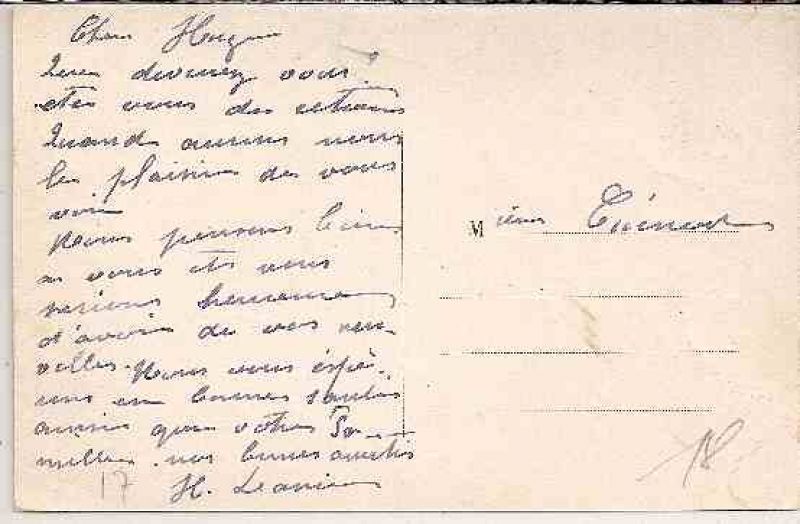 Cher Hugues
Que devenez vous?
êtes vous des retraités
Quand aurons nous
le plaisir de vous
voir
Nous pensons bien
à vous et vous
serions heureux
d'avoir de vos nou-
velles. Nous vous espé-
rons en bonnes santés
ainsi que votre Fa-
milles. nos bonnes amitiés
H.
M
17
18